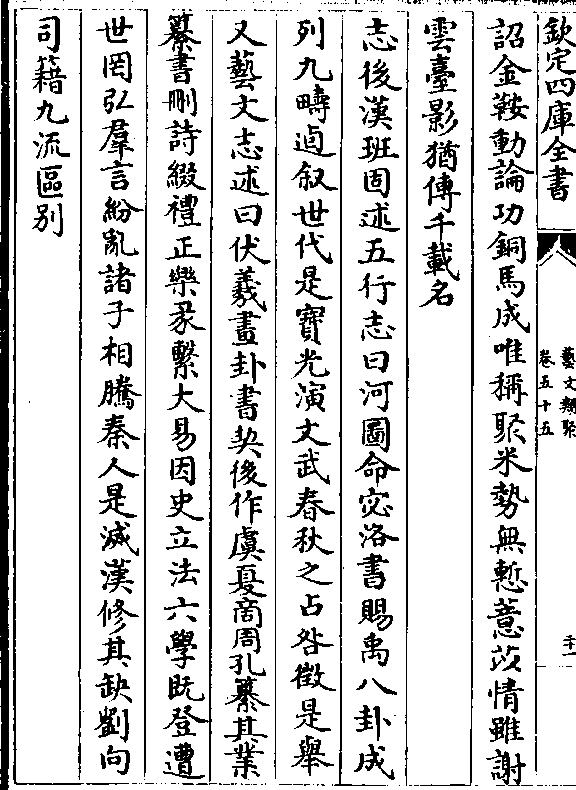 欽定四庫全書
藝文類聚
卷五十五
二十一
詔金鞍動論功銅馬成唯稱聚米勢無慙薏苡情雖謝
雲臺影猶傳千載名
志後漢班固述五行志曰河圖命宓洛書賜禹八卦成
列九疇逌叙世代是寶光演文武春秋之占咎徵是舉
又藝文志述曰伏羲畫卦書契後作虞夏商周孔纂其業
纂書刪詩綴禮正樂彖繫大易因史立法六學既登遭
世罔弘羣言紛亂諸子相騰秦人是滅漢修其缺劉向
司籍九流區別